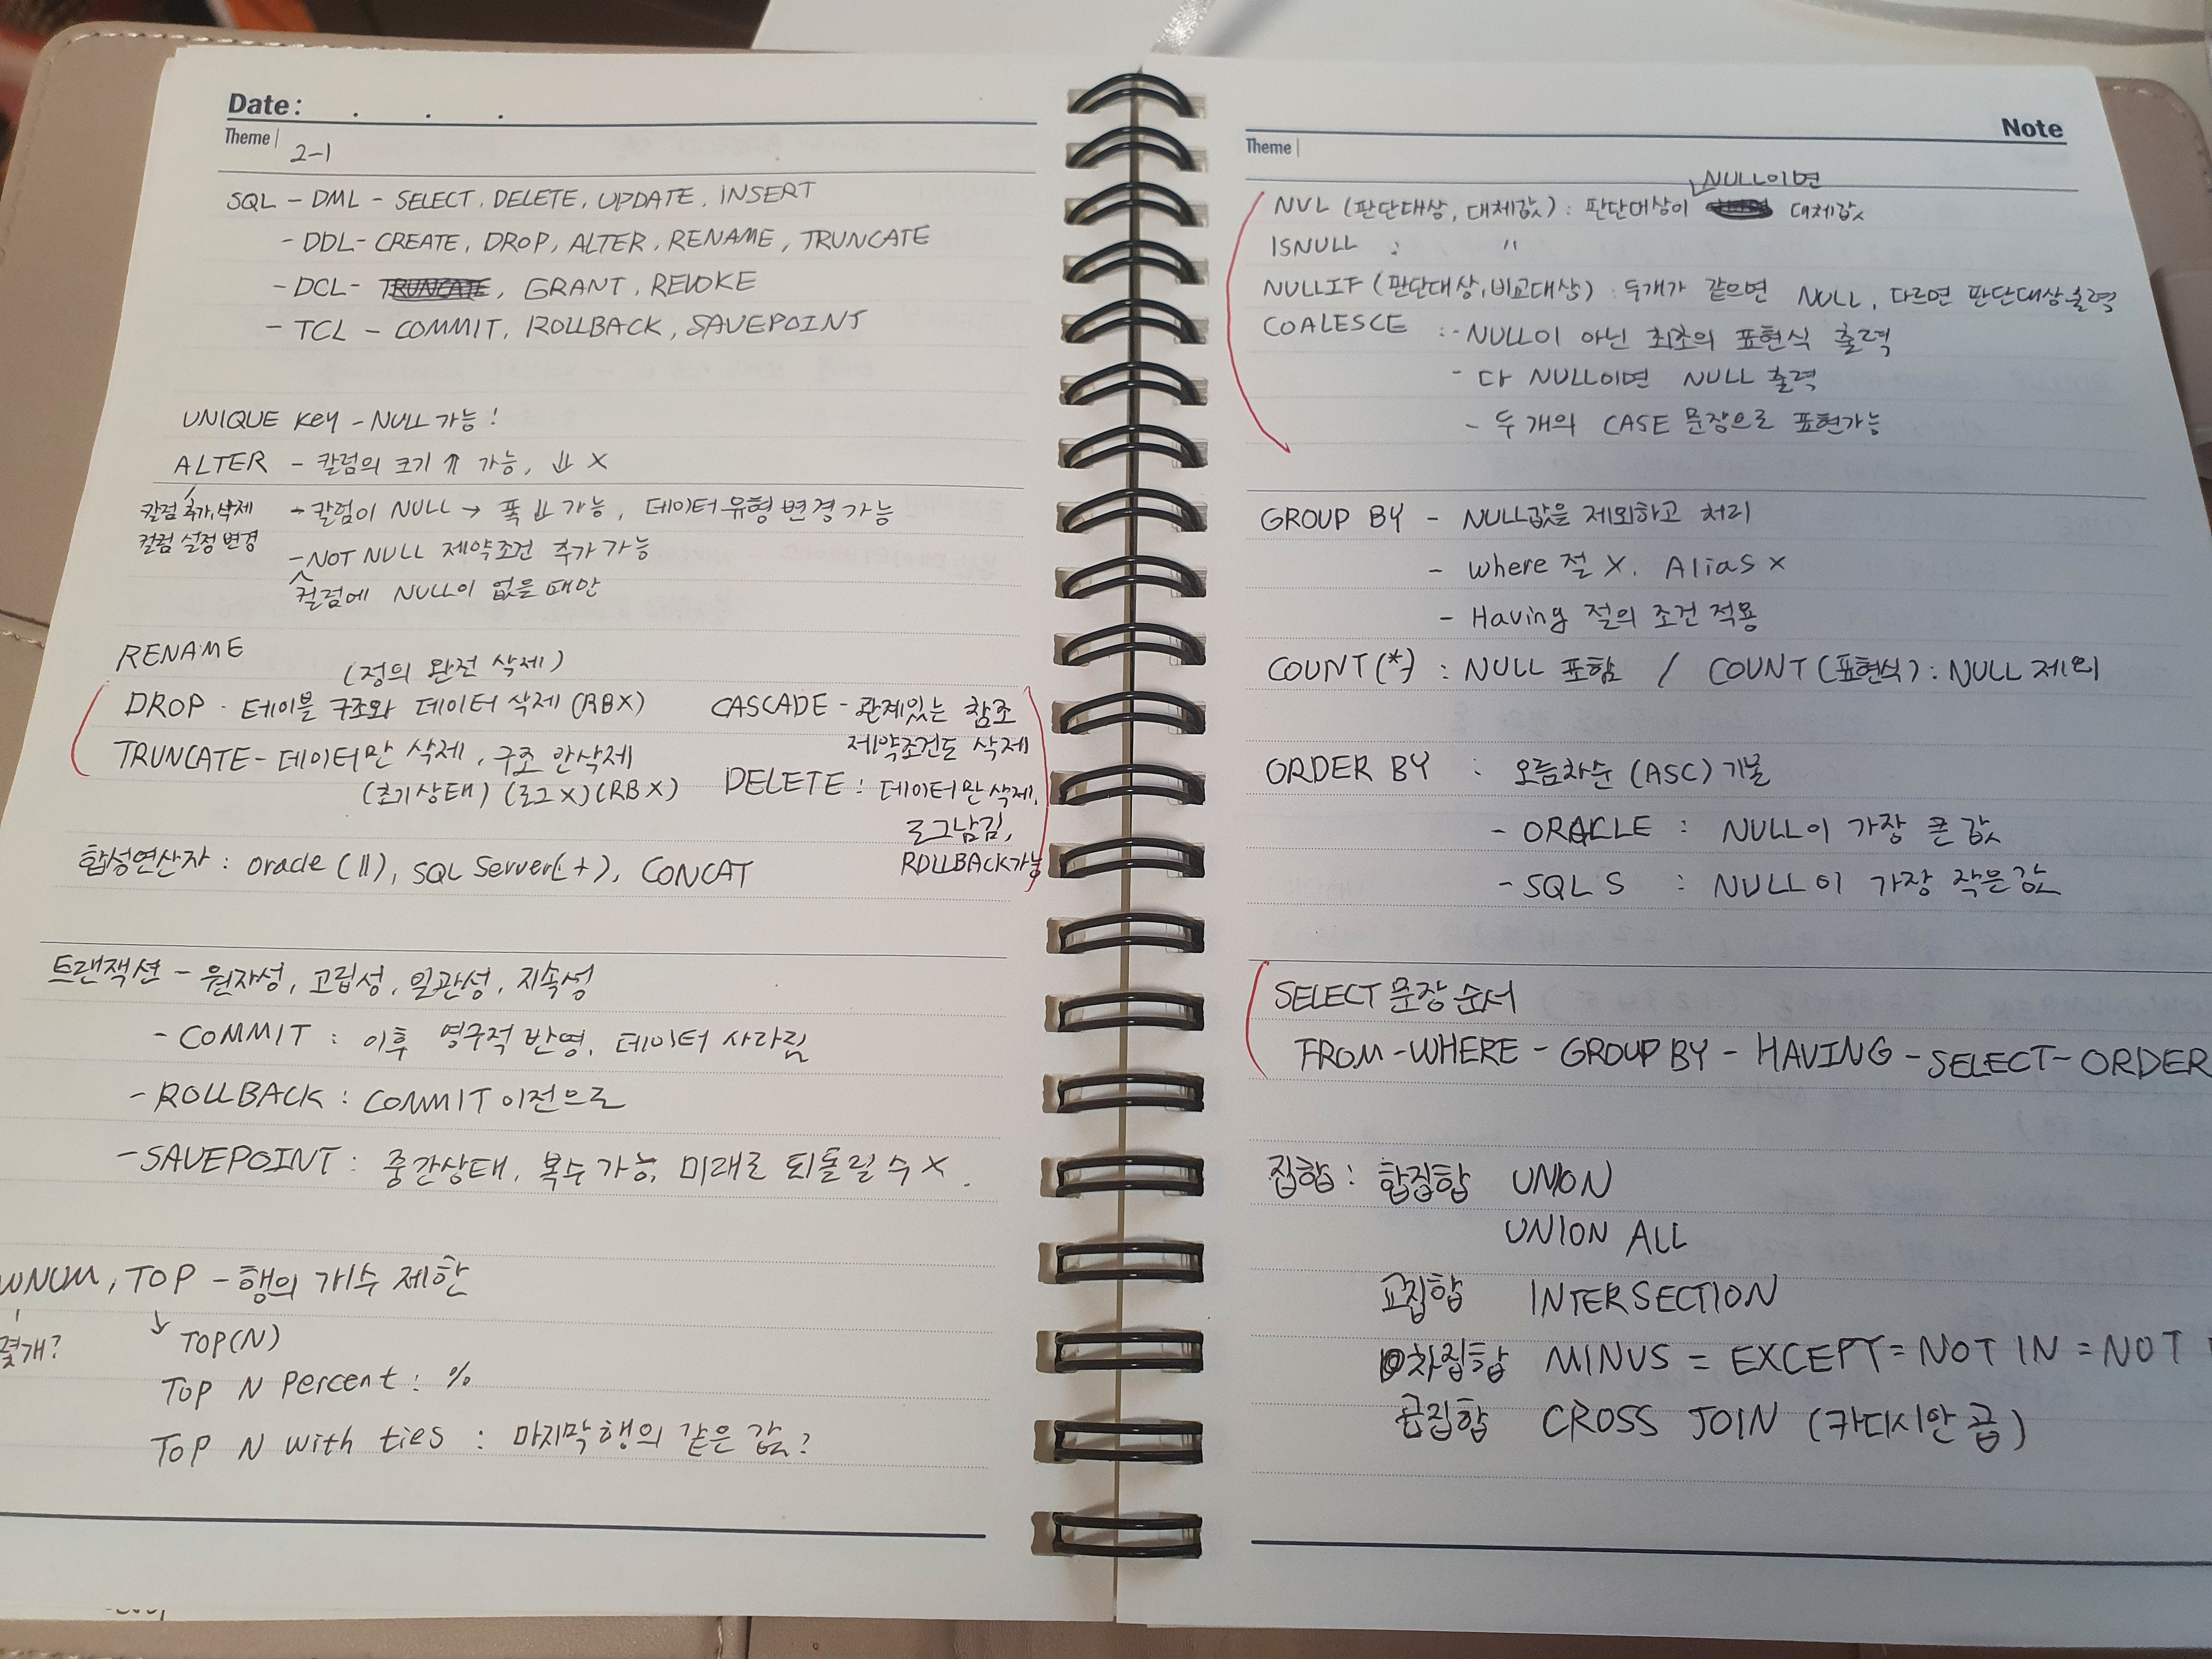 Date: . . .
Theme | 2-1
SQL - DML - SELECT, DELETE, UPDATE, INSERT
- DDL - CREATE, DROP, ALTER, RENAME, TRUNCATE
- DCL - TRUNCATE, GRANT, REVOKE
- TCL - COMMIT, ROLLBACK, SAVEPOINT
UNIQUE Key - NULL 가능!
ALTER - 칼럼의 크기 ⇑ 가능, ⇓ X
칼럼 추가, 삭제
칼럼 설정 변경
- 칼럼이 NULL → 폭 ⇓ 가능, 데이터 유형 변경 가능
- NOT NULL 제약조건 추가 가능
컬럼에 NULL이 없을 때만
RENAME
(정의 완전 삭제)
DROP - 테이블 구조와 데이터 삭제 (RBX)
TRUNCATE - 데이터만 삭제, 구조 안삭제
(초기상태) (로그X) (RBX)
CASCADE - 관계있는 참조
제약조건도 삭제
DELETE : 데이터만 삭제,
로그남김,
ROLLBACK가능
합성연산자 : oracle (||), SQL Server(+), CONCAT
트랜잭션 - 원자성, 고립성, 일관성, 지속성
- COMMIT : 이후 영구적 반영, 데이터 사라짐
- ROLLBACK : COMMIT 이전으로
- SAVEPOINT : 중간상태, 복수 가능, 미래로 되돌릴 수 X.
WNUM, TOP - 행의 개수 제한
몇개?
↘ TOP(N)
TOP N Percent : %
TOP N with ties : 마지막 행의 같은 값?
Note
Theme |
NULL이면
NVL (판단대상, 대체값) : 판단대상이 대체값
ISNULL : "
NULLIF (판단대상, 비교대상) : 두개가 같으면 NULL, 다르면 판단대상출력
COALESCE : - NULL이 아닌 최초의 표현식 출력
- 다 NULL이면 NULL 출력
- 두 개의 CASE 문장으로 표현가능
GROUP BY - NULL값을 제외하고 처리
- where 절 X, Alias X
- Having 절의 조건 적용
COUNT(*) : NULL 포함 / COUNT(표현식) : NULL 제외
ORDER BY : 오름차순 (ASC) 기본
- ORACLE : NULL이 가장 큰 값
- SQL S : NULL이 가장 작은값
SELECT 문장 순서
FROM - WHERE - GROUP BY - HAVING - SELECT - ORDER
집합 : 합집합 UNION
UNION ALL
교집합 INTERSECTION
차집합 MINUS = EXCEPT = NOT IN = NOT
곱집합 CROSS JOIN (카디시안 곱)